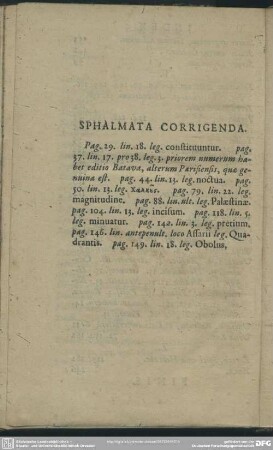 SPHALMATA CORRIGENDA.
Pag. 29. lin. 18. leg. constituuntur. pag.
37. lin. 17. pro 38. leg. 3. priorem numerum ha-
bet editio Batava, alterum Parisiensis, quæ ge-
nuina est. pag. 44. lin. 13. leg. noctua. pag.
50. lin. 13. leg. χαλκες. pag. 79. lin. 22. leg.
magnitudine. pag. 88. lin. ult. leg. Palæstinæ.
pag. 104. lin. 13. leg. incisum. pag. 118. lin. 5.
leg. minuatur. pag. 142. lin. 3. leg. pretium.
pag. 146. lin. antepenult. loco Assarii leg. Qua-
drantis. pag. 149. lin. 18. leg. Obolus,